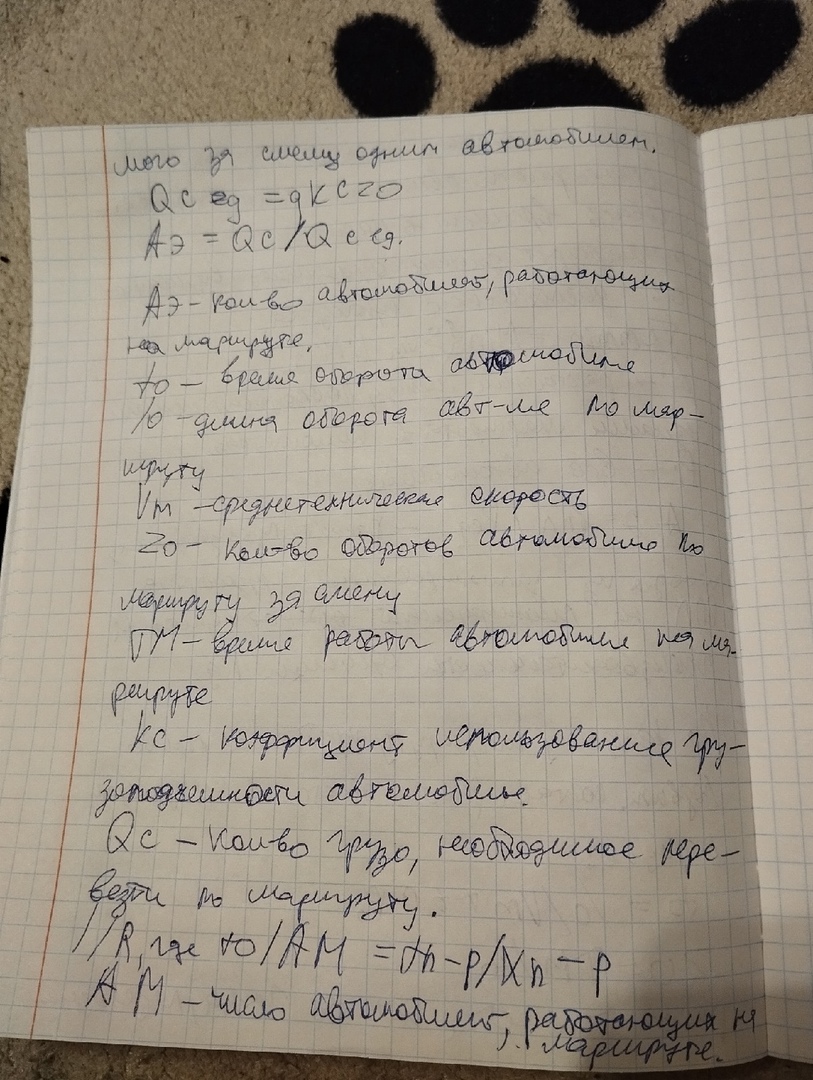 мого за смену одним автомобилем.
Qс ед = qКсzо
Аэ = Qс/Qс ед.
Аэ - кол-во автомобилей, работающих
на маршруте.
tо - время оборота автомобиля
lо - длина оборота авт-ля по мар-
шруту
Vт - среднетехническая скорость
Zо - кол-во оборотов автомобиля по
маршруту за смену
ТМ - время работы автомобиля на ма-
ршруте
Кс - коэффициент использования гру-
зоподъемности автомобилья.
Qс - кол-во грузо, необходимое пере-
везти по маршруту.
//R, где tо/АМ = tп-р/Xп-р
АМ - число автомобилей, работающих на
маршруте.